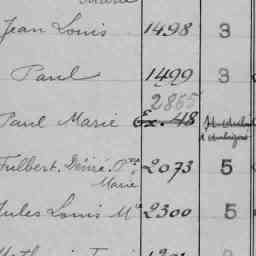 Marie
Jean Louis 1498 3
Paul 1499 3
2865
Paul Marie Ex. 48
Fulbert Désiré Pre 2073 5
Marie
Jules Louis Mie 2300 5